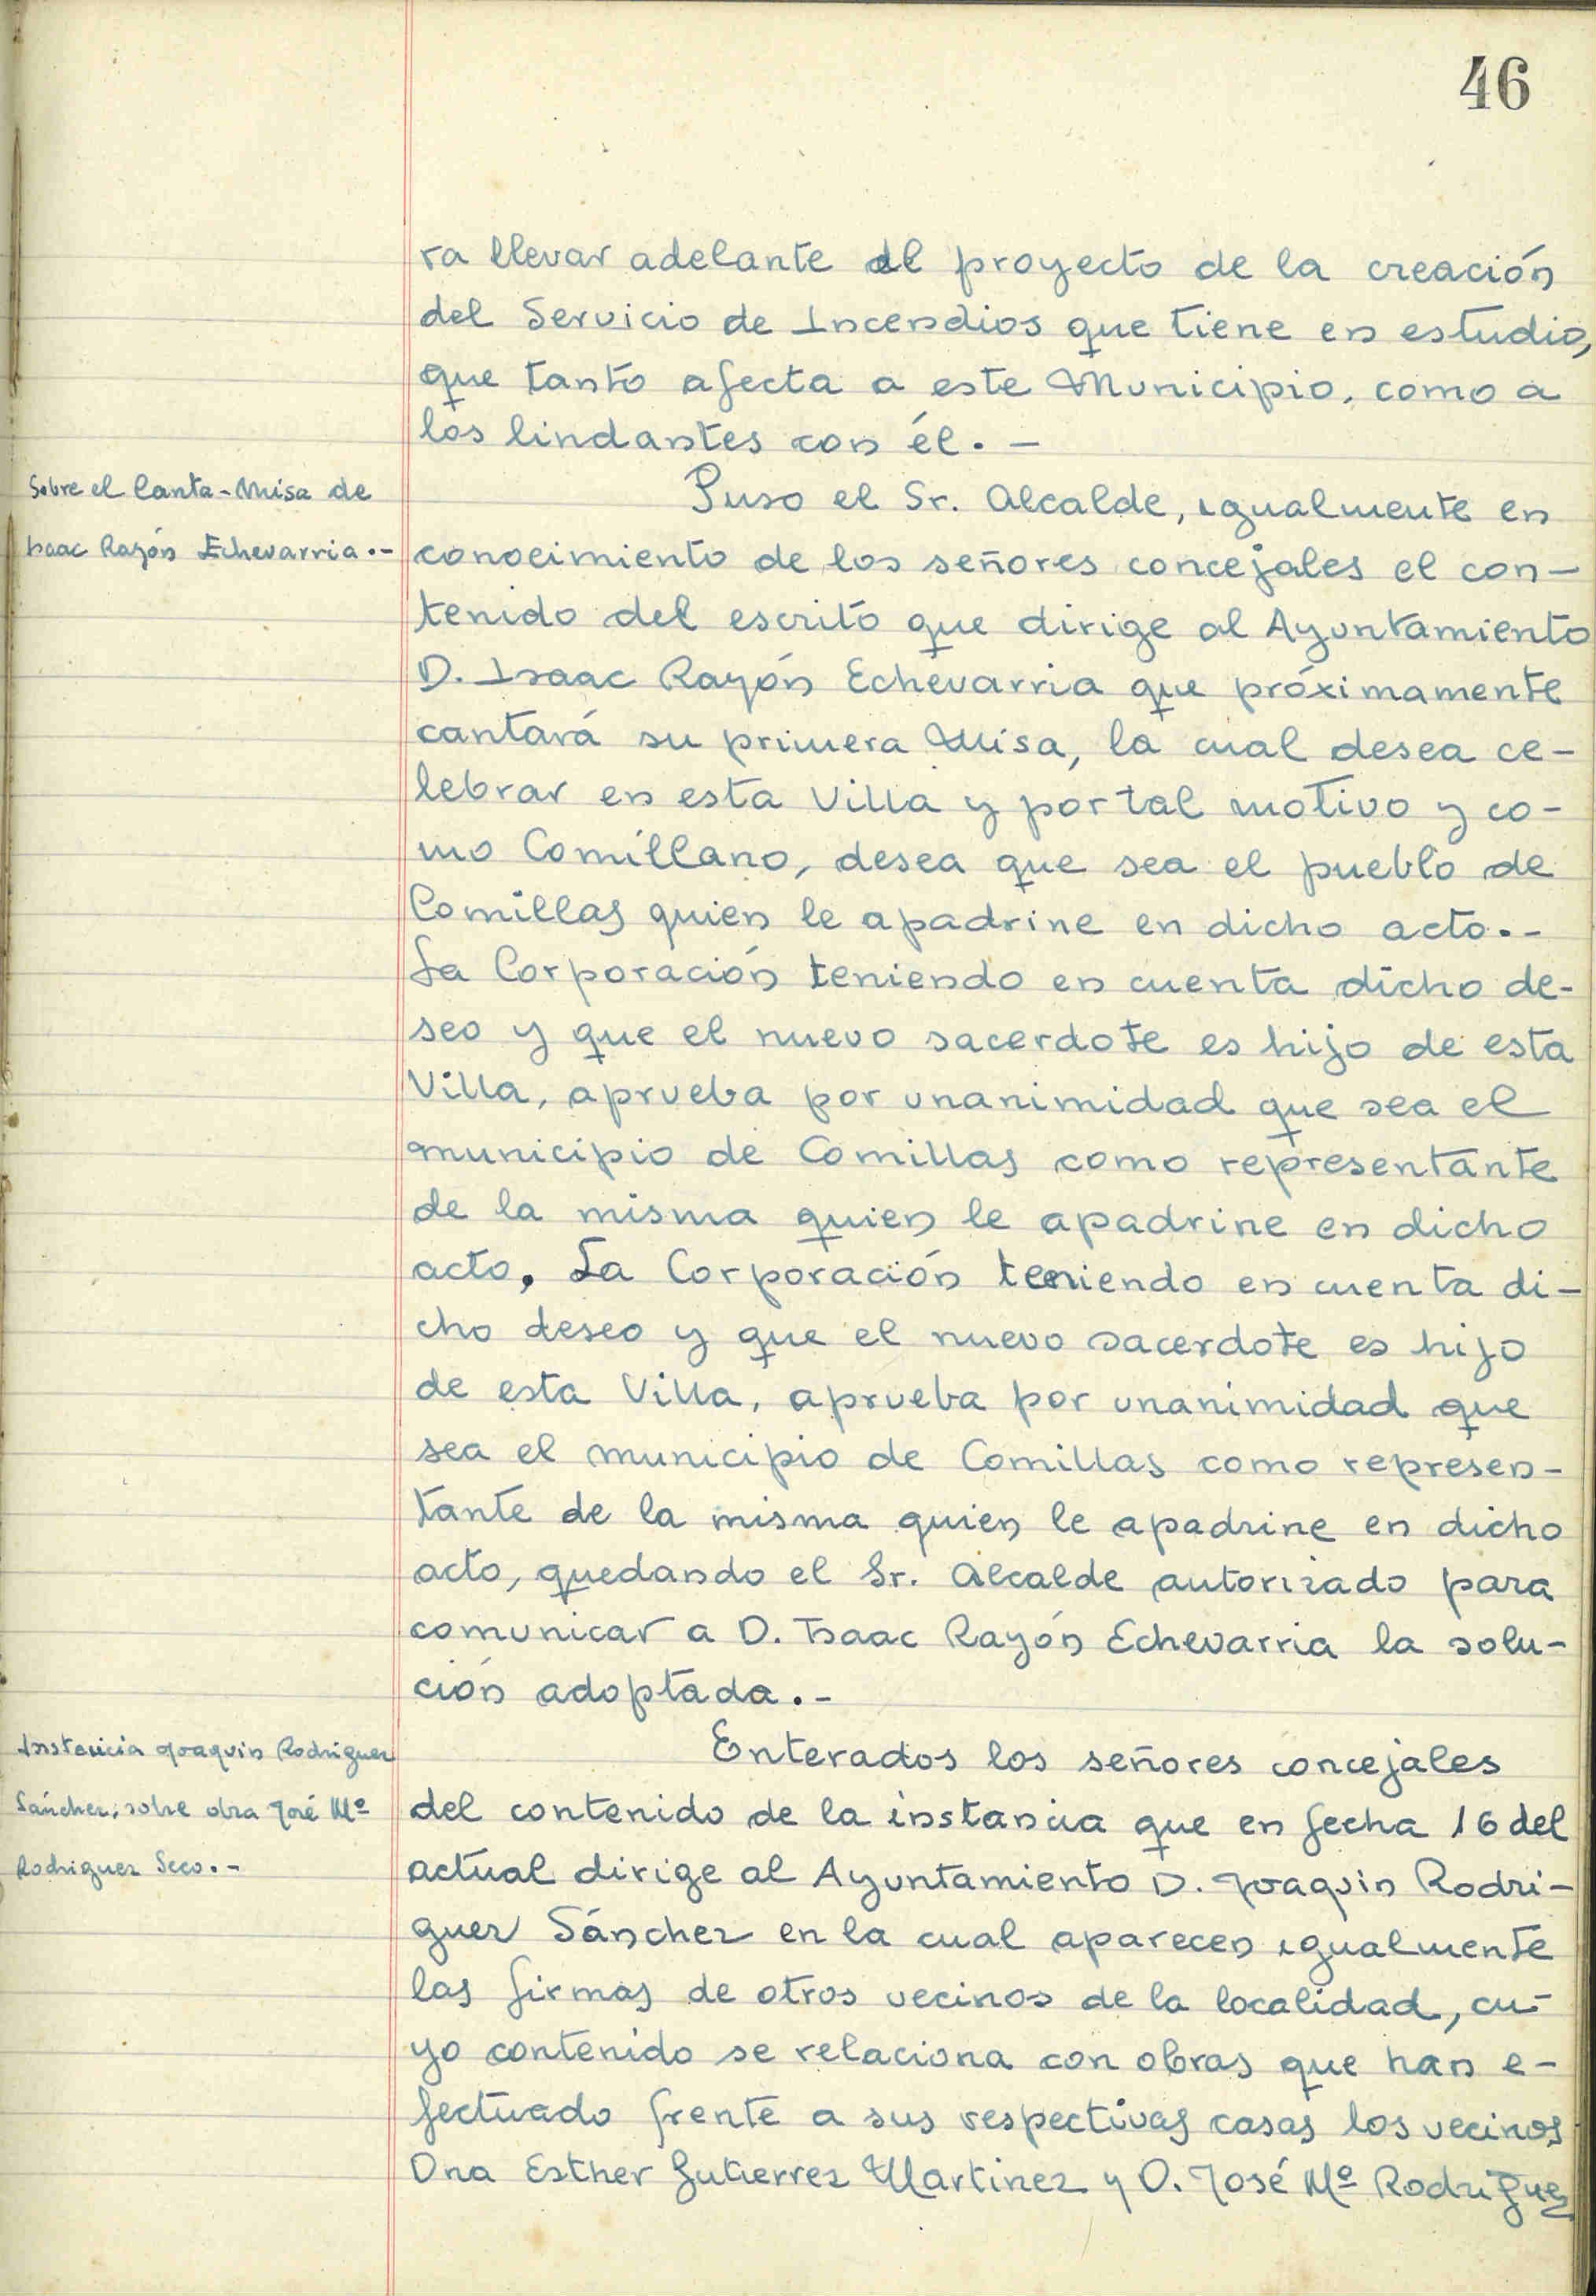 46
ra llevar adelante el proyecto de la creación
del Servicio de Incendios que tiene en estudio,
que tanto afecta a este Municipio, como a
los lindantes con él. -
Sobre el Canta-Misa de
Isaac Rayón Echevarria.-
Puso el Sr. Alcalde, igualmente en
conocimiento de los señores concejales el con-
tenido del escrito que dirige al Ayuntamiento
D. Isaac Rayón Echevarria que próximamente
cantará su primera Misa, la cual desea ce-
lebrar en esta Villa y por tal motivo y co-
mo Comillano, desea que sea el pueblo de
Comillas quien le apadrine en dicho acto.-
La Corporación teniendo en cuenta dicho de-
seo y que el nuevo sacerdote es hijo de esta
Villa, aprueba por unanimidad que sea el
municipio de Comillas como representante
de la misma quien le apadrine en dicho
acto. La Corporación teniendo en cuenta di-
cho deseo y que el nuevo sacerdote es hijo
de esta Villa, aprueba por unanimidad que
sea el municipio de Comillas como represen-
tante de la misma quien le apadrine en dicho
acto, quedando el Sr. Alcalde autorizado para
comunicar a D. Isaac Rayón Echevarria la solu-
ción adoptada.-
Instancia Joaquin Rodriguez
Sánchez, sobre obra José Mª
Rodriguez Seco.-
Enterados los señores concejales
del contenido de la instancia que en fecha 16 del
actual dirige al Ayuntamiento D. Joaquin Rodri-
guez Sánchez en la cual aparecen igualmente
las firmas de otros vecinos de la localidad, cu-
yo contenido se relaciona con obras que han e-
fectuado frente a sus respectivas casas los vecinos
Dna Esther Gutierrez Martinez y D. José Mª Rodriguez